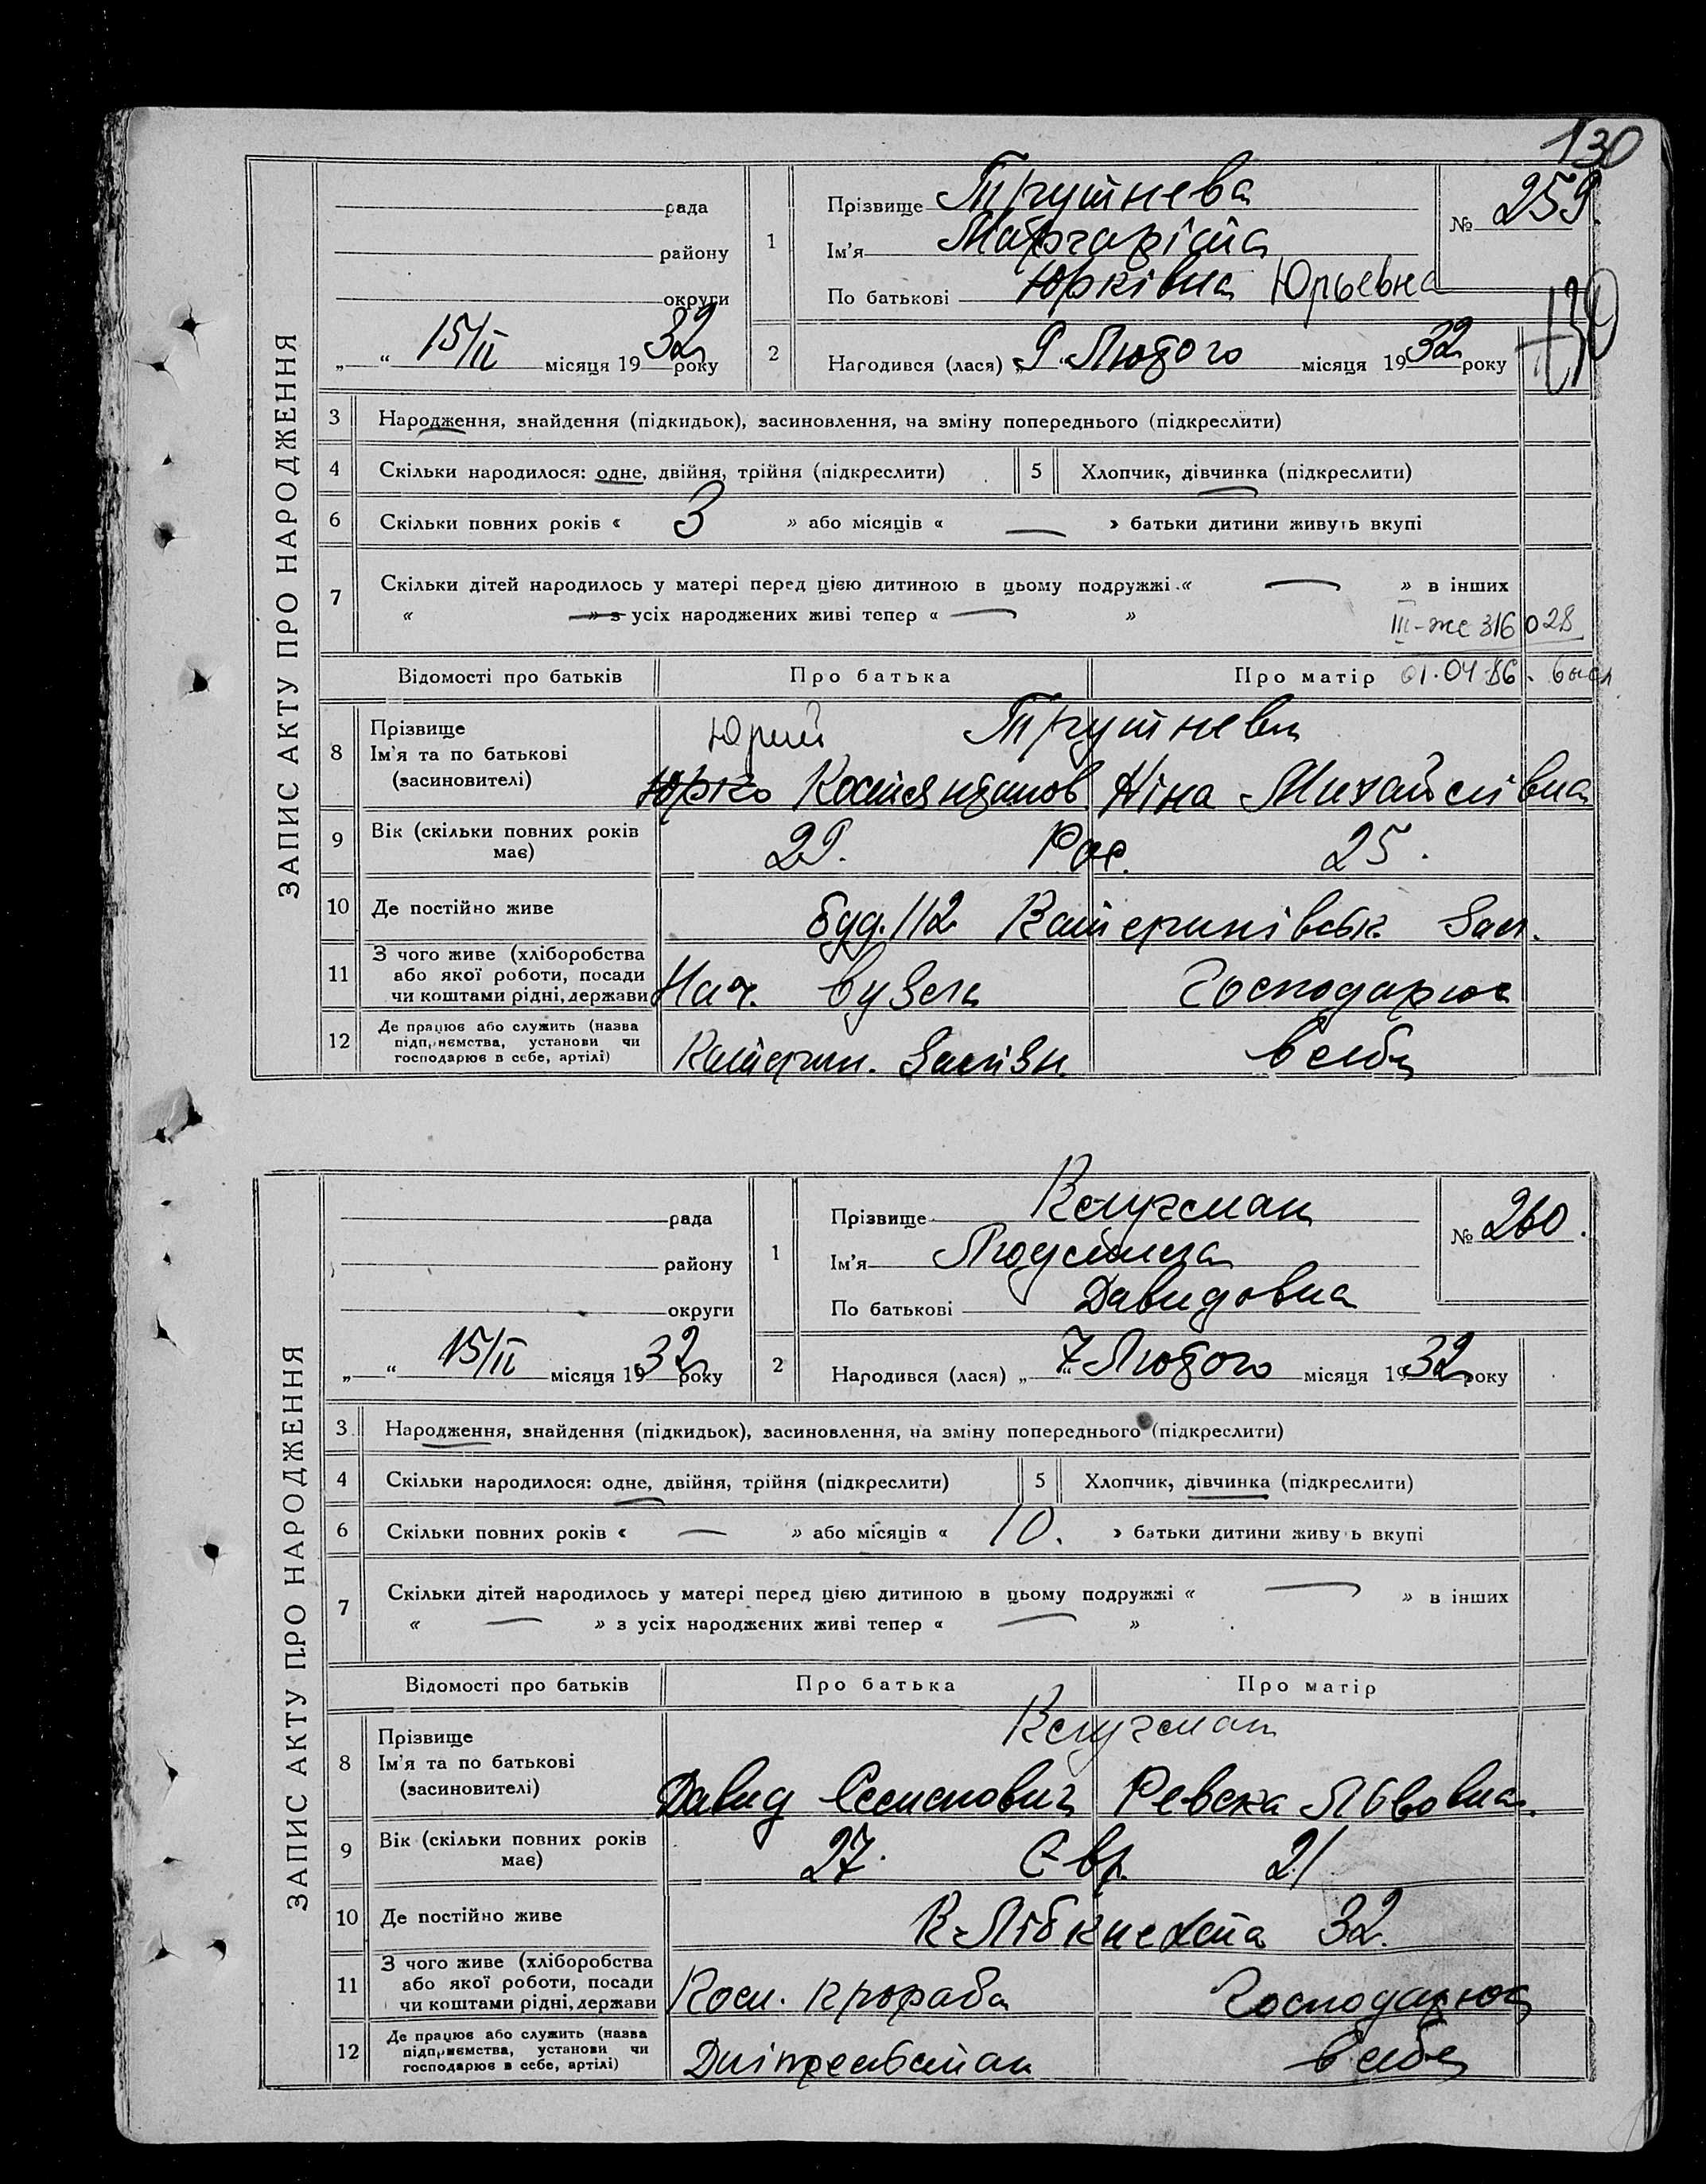 130
ЗАПИС АКТУ ПРО НАРОДЖЕННЯ
рада
району
округи
„ “ 15/II місяця 1932 року
1
Прізвище Трутнева
Ім'я Маргаріта
По батькові Юрківна Юрьевна
№ 259.
130
2
Народився (лася) „9 Лютого місяця 1932 року
3 Народження, знайдення (підкидьок), засиновлення, на зміну попереднього (підкреслити)
4 Скільки народилося: одне, двійня, трійня (підкреслити) 5 Хлопчик, дівчинка (підкреслити)
6 Скільки повних років « 3 » або місяців « — » батьки дитини живуть вкупі
7 Скільки дітей народилось у матері перед цією дитиною в цьому подружжі « — » в інших
« — » з усіх народжених живі тепер « — »
III-же 316028
Відомості про батьків Про батька Про матір 01.04.86.
8 Прізвище
Ім'я та по батькові
(засиновителі)
Трутневи
Юрий
Юрко Костянтинов Ніна Михайлівна
9 Вік (скільки повних років має) 29. Рос. 25.
10 Де постійно живе буд. 112 Катеринівськ. Зал.
11 З чого живе (хліборобства
або якої роботи, посади
чи коштами рідні, держави
Нач. вузла Господарює
12 Де працює або служить (назва
підприємства, установи чи
господарює в себе, артілі)
Катерин. Залізн. в себе
ЗАПИС АКТУ ПРО НАРОДЖЕННЯ
рада
району
округи
„ “ 15/II місяця 1932 року
1
Прізвище Клугман
Ім'я Людмила
По батькові Давидовна
№ 260.
2
Народився (лася) „ 7 “ Лютого місяця 1932 року
3 Народження, знайдення (підкидьок), засиновлення, на зміну попереднього (підкреслити)
4 Скільки народилося: одне, двійня, трійня (підкреслити) 5 Хлопчик, дівчинка (підкреслити)
6 Скільки повних років « — » або місяців « 10. » батьки дитини живуть вкупі
7 Скільки дітей народилось у матері перед цією дитиною в цьому подружжі « — » в інших
« — » з усіх народжених живі тепер « — »
Відомості про батьків Про батька Про матір
8 Прізвище
Ім'я та по батькові
(засиновителі)
Клугман
Давид Ревека Львовна.
9 Вік (скільки повних років має) 27. Євр. 21
10 Де постійно живе К-Лібкнехта 32.
11 З чого живе (хліборобства
або якої роботи, посади
чи коштами рідні, держави
Пом. прораба Господарює
12 Де працює або служить (назва
підприємства, установи чи
господарює в себе, артілі)
в себе